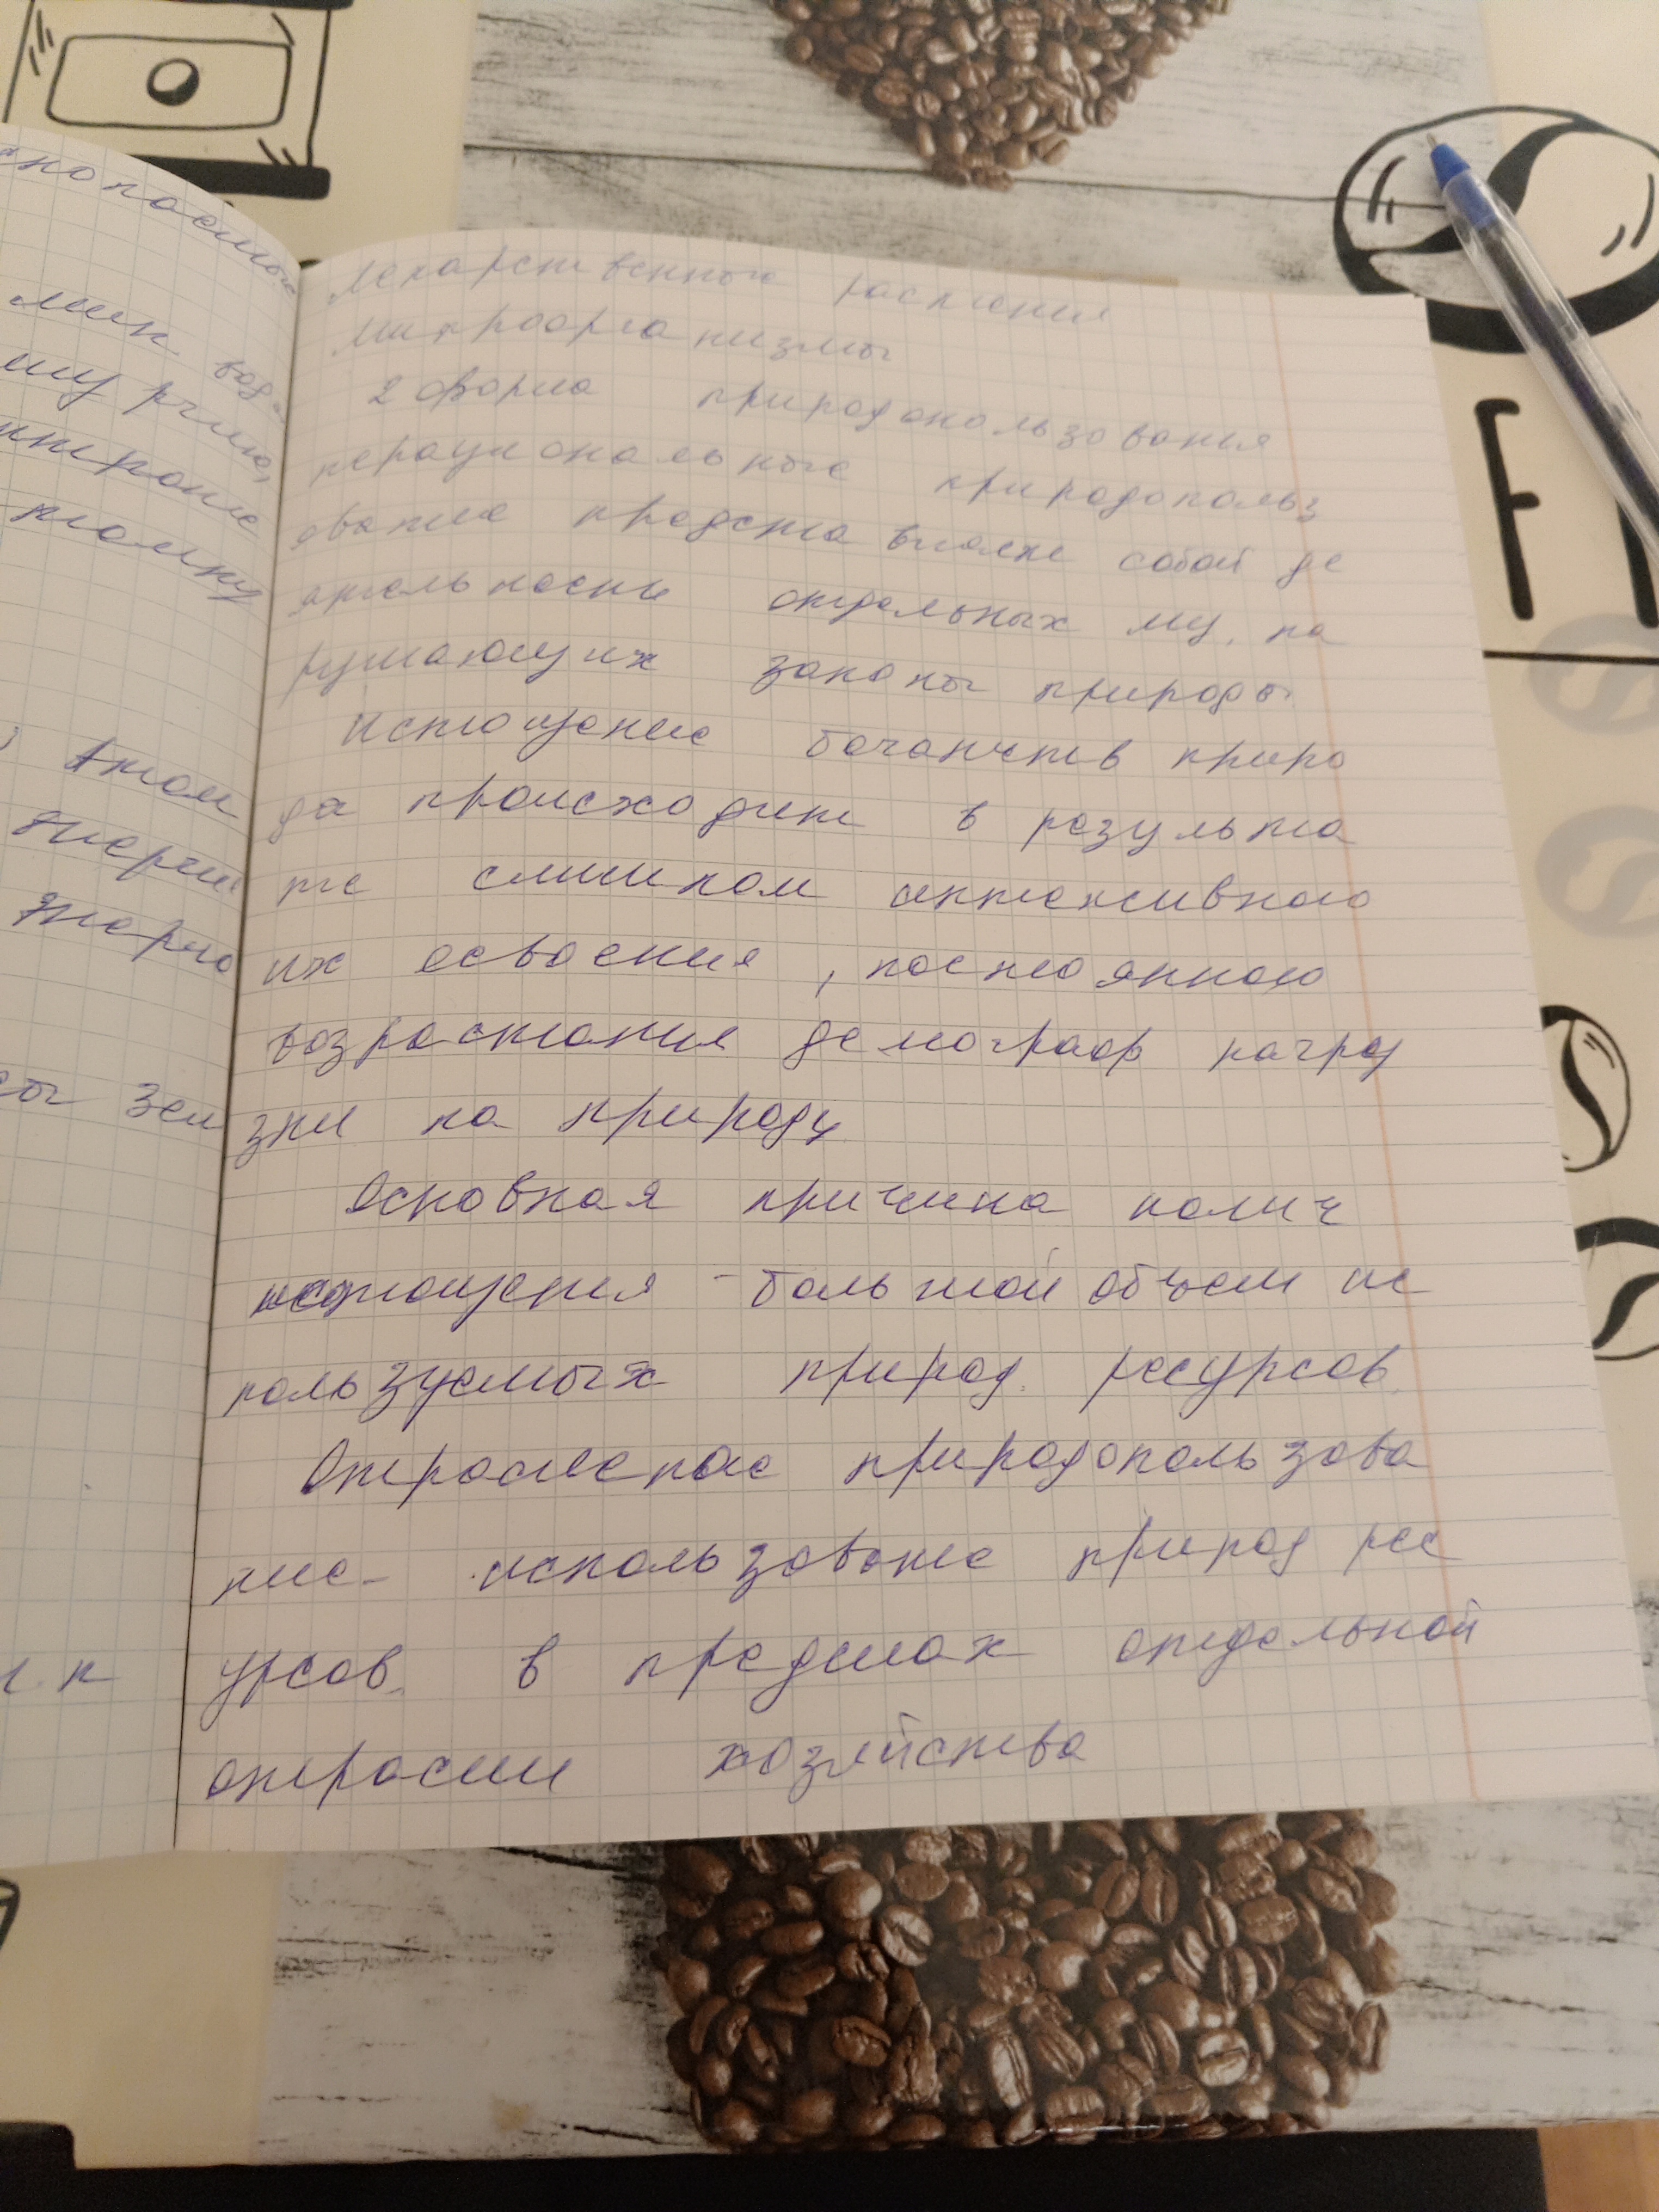 нопосным
лик вод
му ргию,
нтроше
томку
Атом
энерги
энерго
сы зем
и п
лекарственные растения
микроорганизмы
2 форма природопользования
нерациональное природопольз
ование представляене собой де
ятельность отдельных му, на
рушающих законы природы
Истощение богатств приро
да происходит в результа
те слишком интенсивного
их освоения, постоянного
возрастания демограф нагруз
зки на природу
Основная причина колич
истощения - большой объем ис
пользуемых природ. ресурсов.
Отраслевое природопользова
ние - использование природ рес
урсов. в пределах отдельной
отрасли хозяйства
F